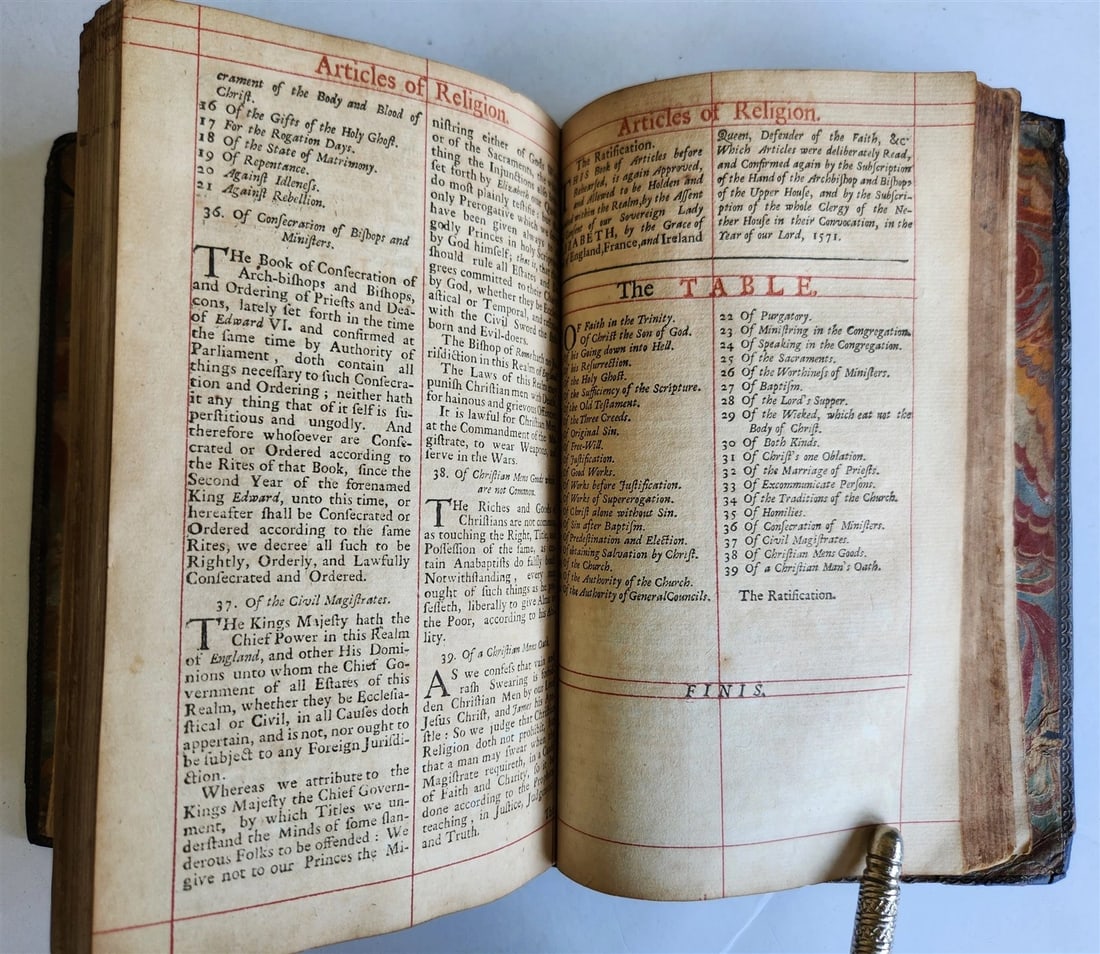 Articles of Religion.
crament of the Body and Blood of
Chriſt.
16 Of the Gifts of the Holy Ghoſt.
17 For the Rogation Days.
18 Of the State of Matrimony.
19 Of Repentance.
20 Againſt Idleneſs.
21 Againſt Rebellion.
36. Of Conſecration of Biſhops and
Miniſters.
THe Book of Conſecration of
Arch-biſhops and Biſhops,
and Ordering of Prieſts and Dea-
cons, lately ſet forth in the time
of Edward VI. and confirmed at
the ſame time by Authority of
Parliament, doth contain all
things neceſſary to ſuch Conſecra-
tion and Ordering; neither hath
it any thing that of it ſelf is ſu-
perſtitious and ungodly. And
therefore whoſoever are Conſe-
crated or Ordered according to
the Rites of that Book, ſince the
Second Year of the forenamed
King Edward, unto this time, or
hereafter ſhall be Conſecrated or
Ordered according to the ſame
Rites, we decree all ſuch to be
Rightly, Orderly, and Lawfully
Conſecrated and Ordered.
37. Of the Civil Magiſtrates.
THe Kings Majeſty hath the
Chief Power in this Realm
of England, and other His Domi-
nions unto whom the Chief Go-
vernment of all Eſtates of this
Realm, whether they be Eccleſia-
ſtical or Civil, in all Cauſes doth
appertain, and is not, nor ought to
be ſubject to any Foreign Juriſdi-
ction.
Whereas we attribute to the
Kings Majeſty the Chief Govern-
ment, by which Titles we un-
derſtand the Minds of ſome ſlan-
derous Folks to be offended: We
give not to our Princes the Mi-
niſtring either of Gods
or of the Sacraments, the
thing the Injunctions alſo
ſet forth by Elizabeth our
do moſt plainly teſtifie:
only Prerogative which we
have been given always
godly Princes in holy
by God himſelf; that is, that
ſhould rule all Eſtates and
grees committed to their
by God, whether they be
aſtical or Temporal, and
with the Civil Sword the
born and Evil-doers.
The Biſhop of Rome hath no
riſdiction in this Realm of
The Laws of this Realm
puniſh Chriſtian men with
for hainous and grievous
It is lawful for Chriſtian
at the Commandment of the
giſtrate, to wear Weapons,
ſerve in the Wars.
38. Of Chriſtian Mens Goods
are not Common.
THe Riches and Goods
Chriſtians are not
as touching the Right, Title,
Poſſeſſion of the ſame, as
tain Anabaptiſts do falſly
Notwithſtanding, every
ought of ſuch things as he
ſeſſeth, liberally to give
the Poor, according to his
lity.
39. Of a Chriſtian Mens Oath.
AS we confeſs that vain
raſh Swearing is
den Chriſtian Men by our
Jeſus Chriſt, and James his
ſtle: So we judge that
Religion doth not prohibit,
that a man may ſwear when
Magiſtrate requireth, in a
of Faith and Charity, ſo
done according to the
teaching, in Juſtice,
and Truth.
Articles of Religion.
The Ratification.
THIS Book of Articles before
Rehearſed, is again Approved,
and Allowed to be Holden and
within the Realm, by the Aſſent
of our Sovereign Lady
by the Grace of
England, France, and Ireland
Queen, Defender of the Faith, &c.
Which Articles were deliberately Read,
and Confirmed again by the Subſcription
of the Hand of the Archbiſhop and Biſhops
of the Upper Houſe, and by the Subſcri-
ption of the whole Clergy of the Ne-
ther Houſe in their Convocation, in the
Year of our Lord, 1571.
The TABLE.
OF Faith in the Trinity.
Of Chriſt the Son of God.
his Going down into Hell.
his Reſurrection.
the Holy Ghoſt.
the Sufficiency of the Scripture.
the Old Teſtament.
the Three Creeds.
Original Sin.
Free-Will.
Juſtification.
Good Works.
Works before Juſtification.
Works of Supererogation.
Chriſt alone without Sin.
Sin after Baptiſm.
Predeſtination and Election.
obtaining Salvation by Chriſt.
the Church.
the Authority of the Church.
the Authority of General Councils.
22 Of Purgatory.
23 Of Miniſtring in the Congregation.
24 Of Speaking in the Congregation.
25 Of the Sacraments.
26 Of the Worthineſs of Miniſters.
27 Of Baptiſm.
28 Of the Lord's Supper.
29 Of the Wicked, which eat not the
Body of Chriſt.
30 Of Both Kinds.
31 Of Chriſt's one Oblation.
32 Of the Marriage of Prieſts.
33 Of Excommunicate Perſons.
34 Of the Traditions of the Church.
35 Of Homilies.
36 Of Conſecration of Miniſters.
37 Of Civil Magiſtrates.
38 Of Chriſtian Mens Goods.
39 Of a Chriſtian Man's Oath.
The Ratification.
FINIS.